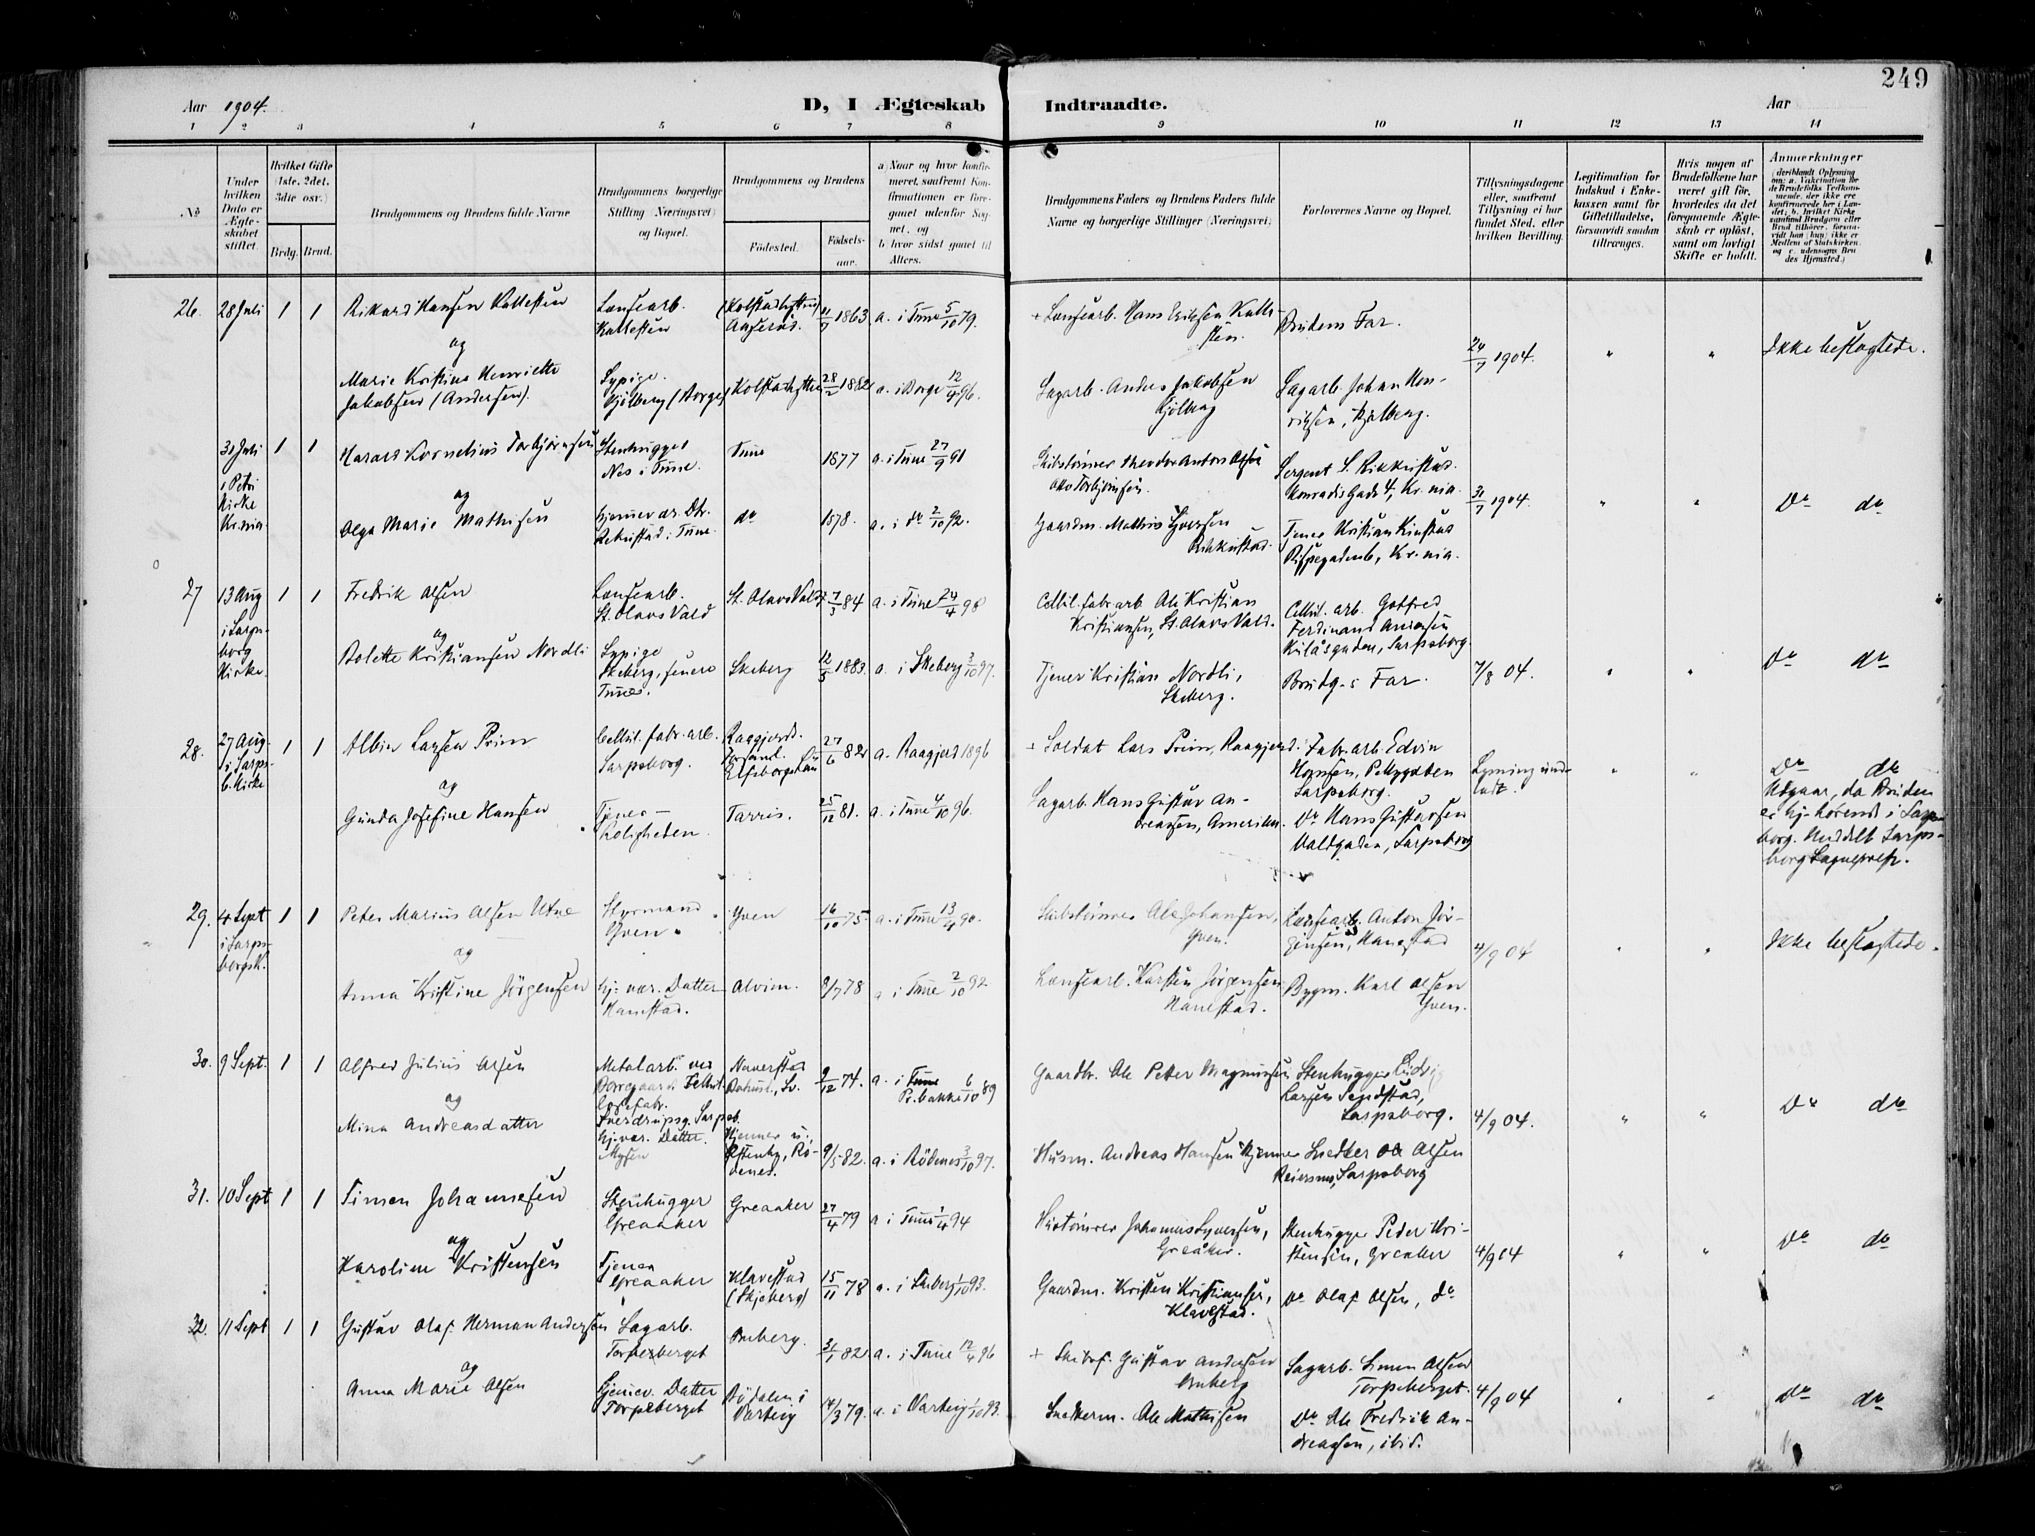 249
Aar 1904.
D, I Ægteskab Indtraadte.
Aar
1 2 3 4 5 6 7 8 9 10 11 12 13 14
No
Under hvilken Dato er Ægteskabet stiftet.
Hvilket Gifte (1ste, 2det, 3die osv.)
Brdg. Brud.
Brudgommens og Brudens fulde Navne
Brudgommens borgerlige Stilling (Næringsvei) og Bopæl.
Brudgommens og Brudens
Fødested. Fødselsaar.
a Naar og hvor konfirmeret, saafremt Konfirmationen er foregaaet udenfor Sognet, og
b hvor sidst gaaet til Alters.
Brudgommens Faders og Brudens Faders fulde Navne og borgerlige Stillinger (Næringsvei)
Forlovernes Navne og Bopæl.
Tillysningsdagene eller, saafremt Tillysning ei har fundet Sted, efter hvilken Bevilling.
Legitimation for Indskud i Enkekassen samt for Giftetilladelse, forsaavidt saadan tiltrænges.
Hvis nogen af Brudefolkene har været gift før, hvorledes da det foregaaende Ægteskab er opløst, samt om lovligt Skifte er holdt.
Anmerkninger
26. 28 Juli 1 1 Rikard Hansen Kattesten
Lænsearb. Kattesten
11/7 1863 a. i Tune 5/10 79.
+ Lænsearb. Hans Eriksen Kattesten.
Brudens Far.
og
Marie Kristine Henriette Jakobsen (Andersen).
Sypige. Kjølberg (Borge)
Kolstadhytten 28/2 1882 a. i Borge 12/4 96.
Sagarb. Anders Jakobsen Kjølberg
Sagarb. Johan Henriksen, Kjølberg.
24/7 1904. " " Ikke beslægtede.
31 Juli i Petri Kirke Kr.nia 1 1 Harald Kornelius Torbjørnsen
Stenhugger Nes i Tune.
Tune 1877 a. i Tune 27/9 91
Skibstømmer Theodor Anton
Torbjørnsen.
Sergent S. Rikkustad. Konradis Gade 4, Kr.nia.
og
Olga Marie Mathisen
Hjemmevær. Dtr.
i Tune.
do 1878. a. i do 2/10 92.
Gaardm. Mathis Syversen
31/7 1904 " " Do do
27 13 Aug i Sarpsborg Kirke. 1 1 Fredrik Olsen
Lænsearb. St. Olavs Vald
St. Olavs Vald 7/3 84 a. i Tune 24/4 98
Cellul. fabr. arb Ole Kristian Kristiansen, St. Olavs Vald.
Cellul. arb. Gotfred Ferdinand Andersen
Sarpsborg.
og
Bolette Kristiansen Nordli
Sypige Skeberg, senere Tunes.
Skeberg 12/5 1883 a. i Skeberg 3/10 97.
Tjener Kristian Nordli, Skeberg.
Brudg-s Far.
7/8 04. " " Do do
28. 27 Aug. i Sarpsb. Kirke 1 1 Albin Larsen Prim
Cellul. fabr. arb. Sarpsborg.
Elfsborgs Län 27/6 82 a. Raagjerd 1896
+ Soldat Lars Prim, Raagjerd.
Fabr. arb. Edvin Hansen,
Sarpsborg.
Lysning undladt.
og
Gunda Josefine Hansen
Tjener - Roligheden.
Tarris. 25/12 81. a. i Tune 4/10 96.
Sagarb. Hans Gustav Andreassen, Amerika.
Do Hans Gustavsen Valdgaden, Sarpsborg
" " Do do
Udgaar, da Bruden er hj. hørende i Sarpsborg. Meddelt Sarpsborg Sognepræst.
29. 4 Sept i Sarpsborgs K. 1 1 Peter Marius Olsen Utne
Styrmand Yven
Yven 16/10 75 a. i Tune 13/4 90.
Skibstømmer Ole Johansen, Yven.
Lænsearb. Anton Jørgensen, Hanestad
og
Anna Kristine Jørgensen
Hj. vær. Datter Hanestad.
Alvim. 8/7 78 a i Tune 2/10 92
Lænsearb. Karsten Jørgensen Hanestad.
Bygm. Karl Olsen Yven.
4/9 04 " " Ikke beslægtede.
30. 9 Sept. 1 1 Alfred Julius Olsen
Metalarb. ved Borregaard Cellulosefabr. Sverdrupsg. Sarpsb.
Naverstad Bohusl., Sv. 9/12 74. a. i Tune 6/10 89
Gaardbr. Ole Peter Magnussen
Stenhugger Ludvig Larsen Sandstad, Sarpsborg.
og
Mina Andreasdatter
Hj. vær. Datter. Mysen
Rødenes. 9/5 82. a. i Rødenes 3/10 97.
Husm. Andreas Hansen Hjemmer
Snedker Ole Olsen
Sarpsborg
4/9 04. " " Do do
31. 10 Sept 1 1 Simen Johannesen
Stenhugger Greaaker
Greaaker 27/4 79 a i Tune 1/4 94
Hustømrer Johannes Syversen, Greåker.
Stenhugger Peder Kristensen, Greaker
og
Karoline Kristensen
Tjener Greaaker
Klavestad (Skjeberg) 15/11 78 a. i Skeberg 1/10 93.
Gaardm. Kristen Kristiansen, Klavestad.
Do Olaf Olsen, do
4/9 04 " " Do do
32. 11 Sept 1 1 Gustav Olaf Herman Andersen
Sagarb. Torpeberget
31/1 82 a. i Tune 12/4 96
+ Gustav Andersen
Sagarb. Simen Olsen Torpeberget.
og
Anna Marie Olsen
Hjemmev. Datter Torpeberget
Varteig 14/3 79. a. i Varteig 1/10 93.
Snekkerm. Ole Mathisen
Do Ole Fredrik Andreassen, ibid.
4/9 04 " " Do do